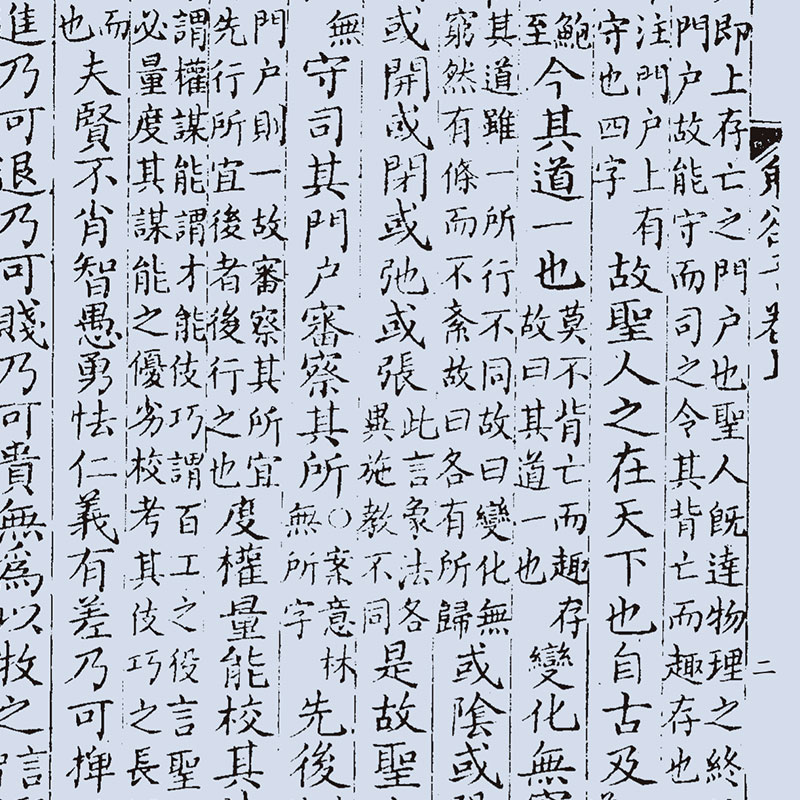 二
即上存亡之門户也聖人既達物理之終
門户故能守而司之令其背亡而趣存也
注門户上有
守也四字
故聖人之在天下也自古及
鮑
至
今其道一也
莫不背亡而趣存
故曰其道一也
變化無
其道雖一所行不同故曰變化無
窮然有條而不紊故曰各有所歸
或陰或
或開或閉或弛或張
此言象法各
異施教不同
是故聖
無
守司其門户審察其所
○案意林
無所字
先後
門户則一故審察其所宜
先行所宜後者後行之也
度權量能校其
謂權謀能謂才能伎巧謂百工之役言聖
必量度其謀能之優劣校考其伎巧之長
而
也
夫賢不肖智愚勇怯仁義有差乃可捭
進乃可退乃可賤乃可貴無為以牧之
言